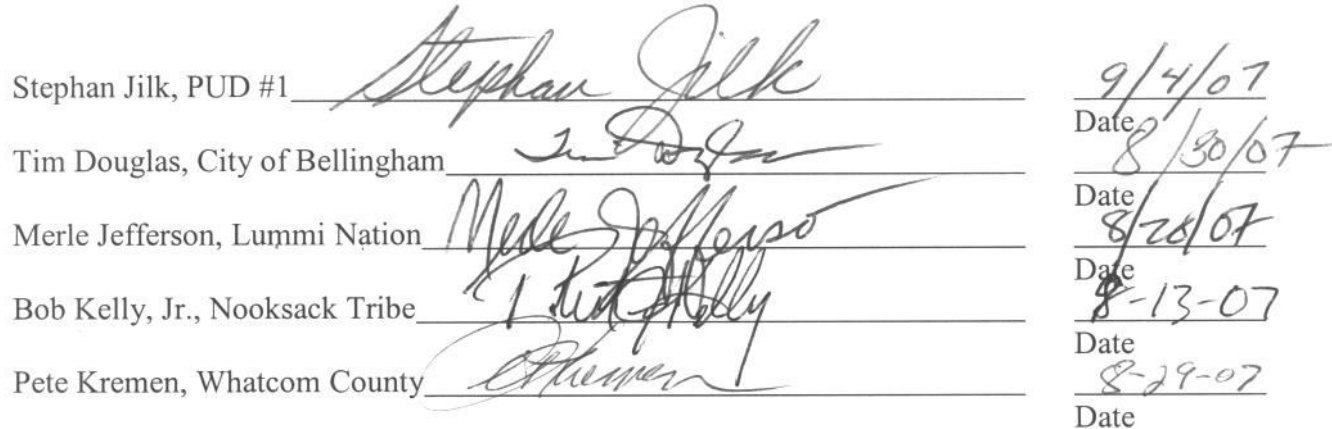 Stephan Jilk, PUD #1 Stephan Jilk 9/4/07
Date
Tim Douglas, City of Bellingham Tim Douglas 8/30/07
Date
Merle Jefferson, Lummi Nation Merle Jefferson 8/28/07
Date
Bob Kelly, Jr., Nooksack Tribe Kelly 8-13-07
Date
Pete Kremen, Whatcom County Kremen 8-29-07
Date